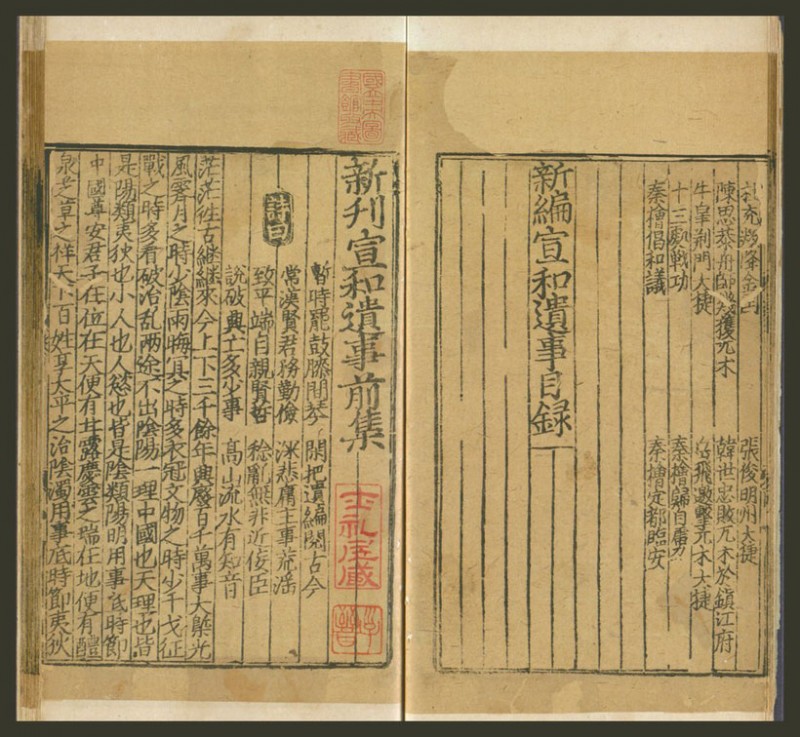 張俊明州大捷
陳思恭舟師幾獲兀朮　韓世忠敗兀朮於鎮江府
牛皐荆門大捷　岳飛邀擊兀朮大捷
十三處戰功　秦檜歸自虜
秦檜倡和議　秦檜定都臨安
新編宣和遺事目録
新刋宣和遺事前集
詩曰
暫時罷鼓膝間琴　閑把遺編閱古今
常漢賢君務勤儉　深悲庸主事荒淫
致平端自親賢哲　稔亂無非近佞臣
說破興亡多少事　高山流水有知音
茫茫徃古継継來今上下三千餘年興廢百千萬事大槩光
風霽月之時少陰雨晦冥之時多衣冠文物之時少干戈征
戰之時多看破治乱两途不出陰陽一理中國也天理也皆
是陽類夷狄也小人也人慾也皆是陰類陽明用事底時節
中國尊安君子在位在天便有甘露慶雲之瑞在地便有醴
泉芝草之祥天下百姓享太平之治陰濁用事底時節夷狄
士礼居藏